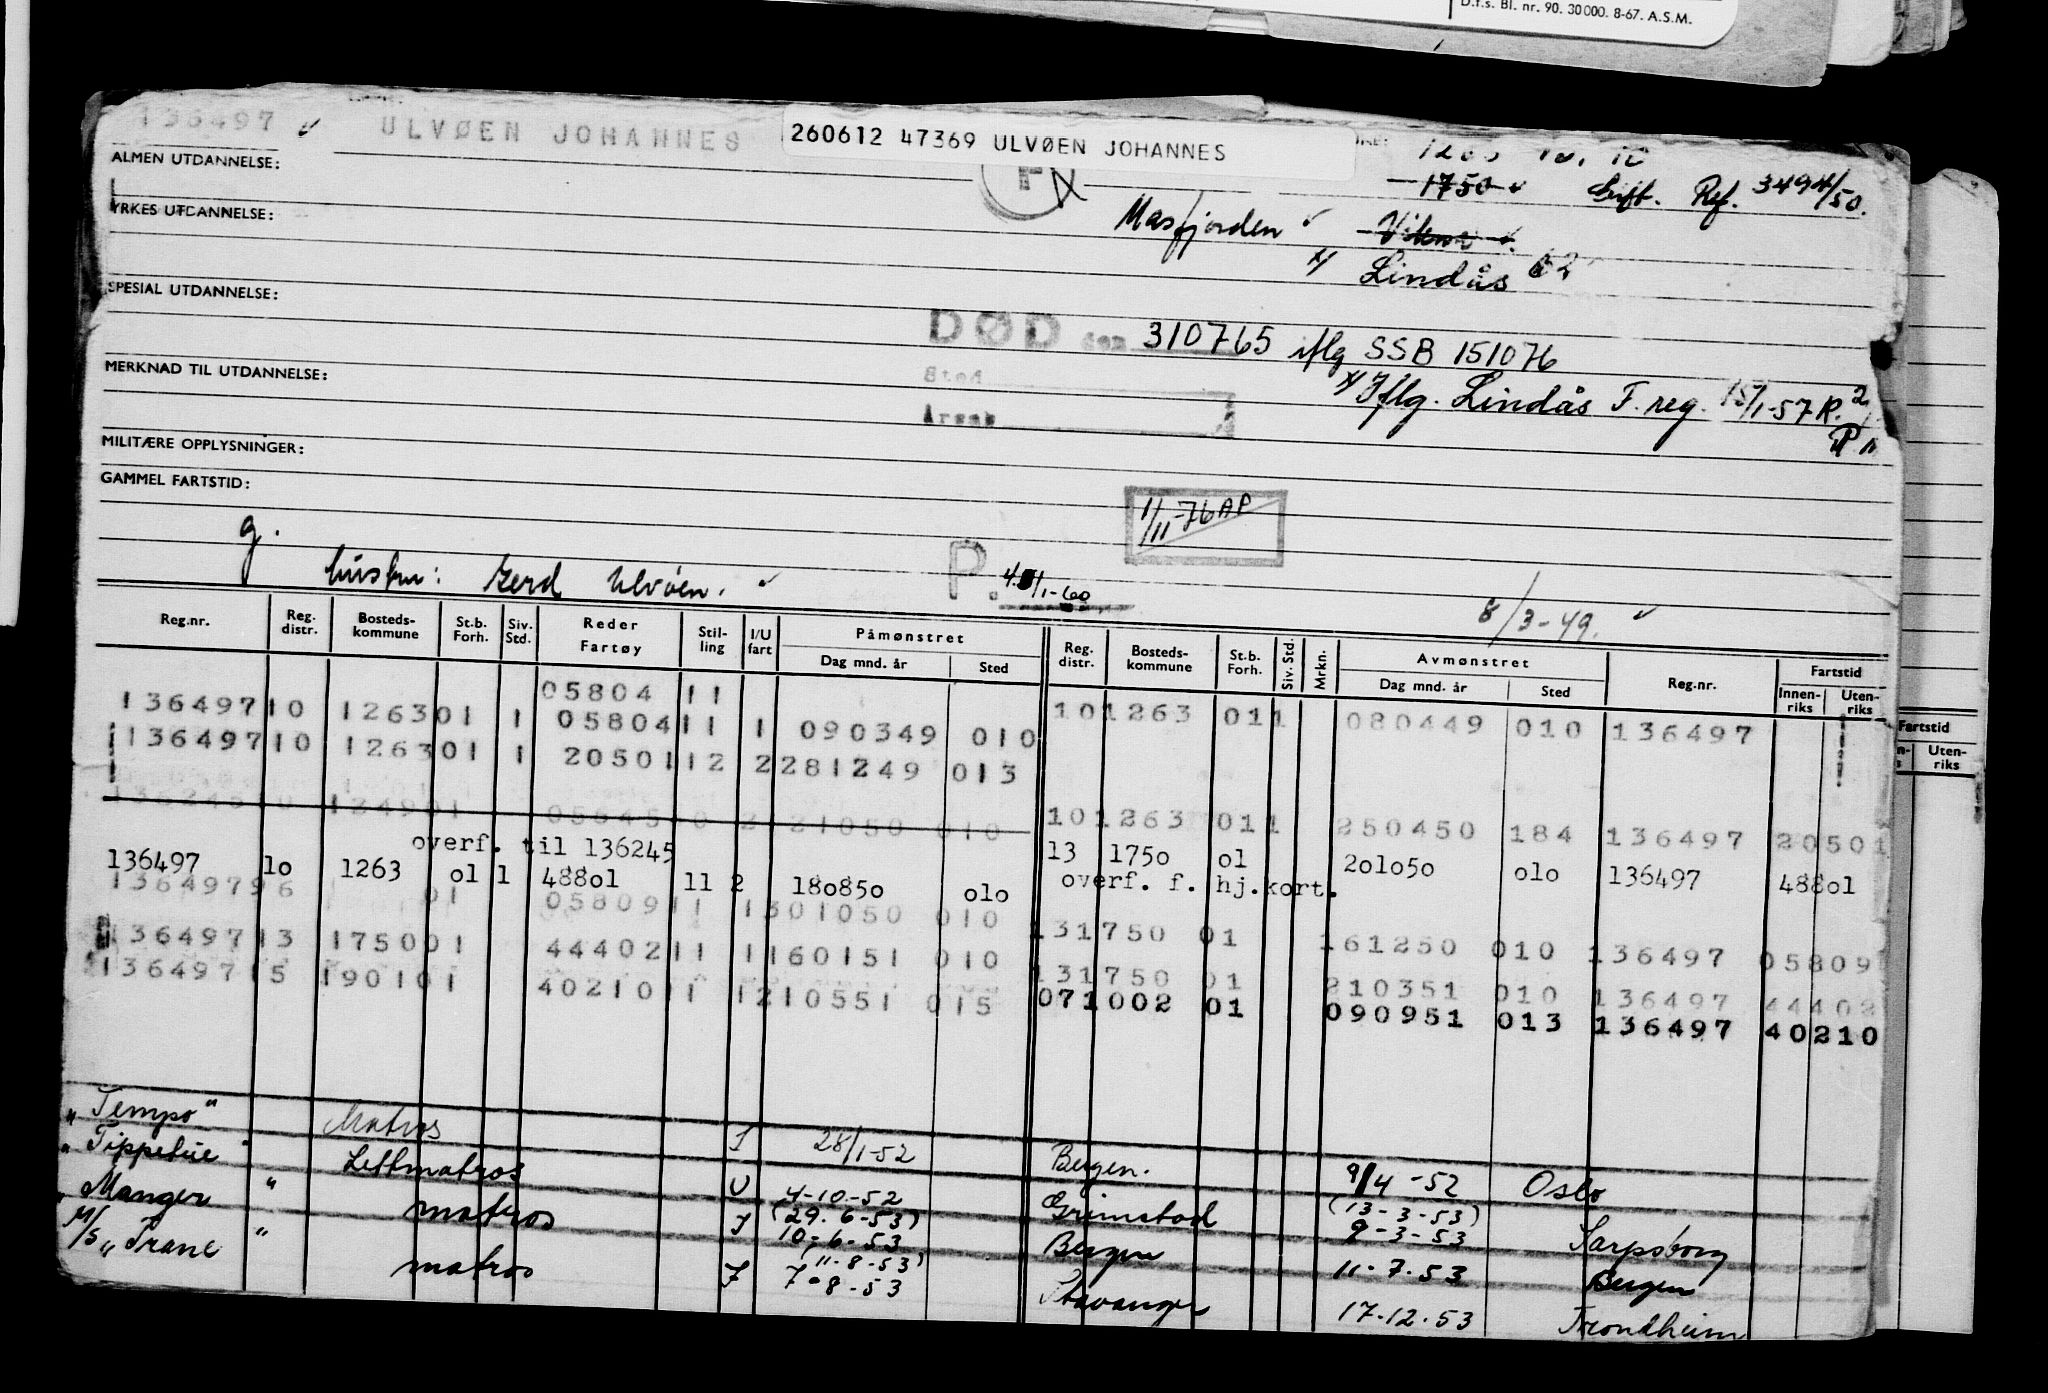 D.f.s. Bl. nr. 90. 30000. 8-67. A.S.M.
136497 ULVØEN JOHANNES
260612 47369 ULVØEN JOHANNES
ALMEN UTDANNELSE:
1750 Skift. Ref. 3494/50.
YRKES UTDANNELSE:
Masfjorden
Lindås 62
SPESIAL UTDANNELSE:
DØD den 310765 iflg SSB 151076
Sted
MERKNAD TIL UTDANNELSE:
Iflg. Lindås F. reg. 15/1-57 R.
Årsak
MILITÆRE OPPLYSNINGER:
GAMMEL FARTSTID:
1/11-76 AP
g.
hustru: Gerd Ulvøen.
P.
8/3-49.
Reg.nr. Reg. distr. Bosteds-kommune St.b. Forh. Siv. Std. Reder Fartøy Stil-ling I/U fart Påmønstret Dag mnd. år Sted Reg. distr. Bosteds-kommune St.b. Forh. Siv. Std. Mrkn. Avmønstret Dag mnd. år Sted Reg.nr. Fartstid Innen-riks Uten-riks
Fartstid
Uten-riks
05804 11
136497 10 1263 01 1 05804 11 1 090349 010 10 1263 01 1 080449 010 136497
136497 10 1263 01 1 20501 12 2 281249 013
10 1263 01 1 250450 184 136497 20501
overf. til 136245
136497 lo 1263 ol 1 488ol 11 2 18o85o olo 13 175o ol 2olo5o olo 136497 488ol
overf. f. hj.kort.
136497 96 01 05809 11 1 301050 010 13 1750 01 161250 010 136497 05809
136497 13 1750 01 44402 11 1 160151 010 13 1750 01 210351 010 136497 44402
136497 15 1901 01 40210 11 1 210551 015 07 1002 01 090951 013 136497 40210
"Tempo" Matros I 28/1-52 Bergen. 9/4-52 Oslo
Lettmatros U 4-10-52 Grimstad (13-3-53) 9-3-53 Sarpsborg
"Manger" matros I (29.6-53) 10-6-53 Bergen 11.7.53 Bergen
M/S "Trane" matros I (11-8-53) 7-8-53 Stavanger 17.12.53 Trondheim